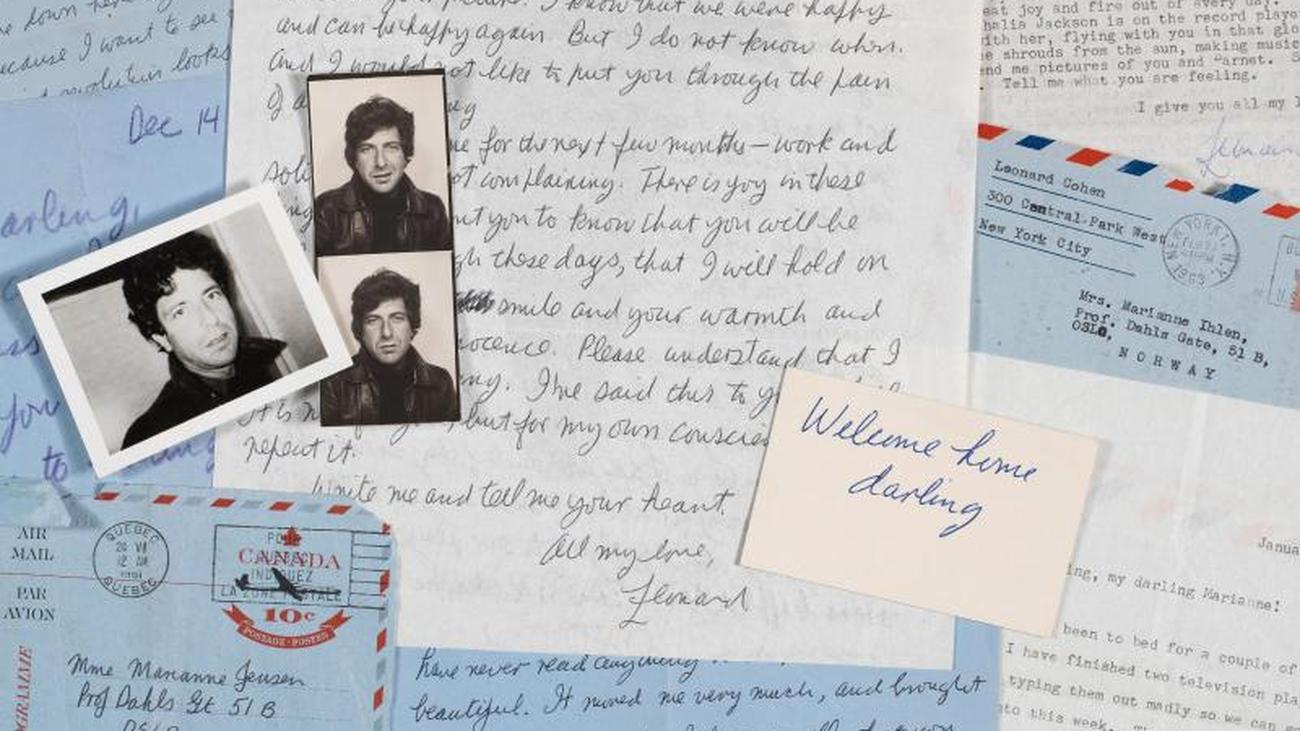 because I want to see
revolution looks
Dec 14
arling,
you
to
we were happy
and can be happy again. But I do not know when.
And I would not like to put you through the pain
me for the next few months – work and
not complaining. There is joy in these
you to know that you will be
these days, that I will hold on
smile and your warmth and
nocence. Please understand that I
ing. I've said this to
It is but for my own
repeat it.
Write me and tell me your heart.
All my love,
Leonard
eat joy and fire out of every day.
halia Jackson is on the record playe
ith her, flying with you in that glo
e shrouds from the sun, making music
end me pictures of you and "arnet. S
. Tell me what you are feeling.
I give you all my l
Leonard Cohen
300 Central Park West
New York City
NEW YORK, N.Y.
1963
Mrs. Marianne Ihlen,
Prof. Dahls Gate, 51 B,
OSLO,
NORWAY
Welcome home
darling
AIR
MAIL
PAR
AVION
QUEBEC
12 AM
QUEBEC
CANADA
10c
POSTAGE·POSTES
Mme Marianne Jensen
Prof Dahls Gt 51 B
OSLO
have never read anything
beautiful. It moved me very much, and brought
Janua
ing, my darling Marianne!
been to bed for a couple of
I have finished two television pla
typing them out madly so we can g
to this week.